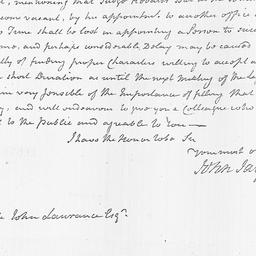 , mentioning that Judge Hobart
come vacant, by his appointment to another office
no Time shall be lost in appointing a Person to succ
and perhaps considerable Delay may be caused
lty of finding proper Characters willing to accept a
short Duration as until the next Meeting of the
am very sensible of the Importance of filling that
and will endeavour to give you a Colleague who
to the Public and agreable to You—
I have the Honor to be Sir
your most o
John Jay
John Lawrance Esqr.